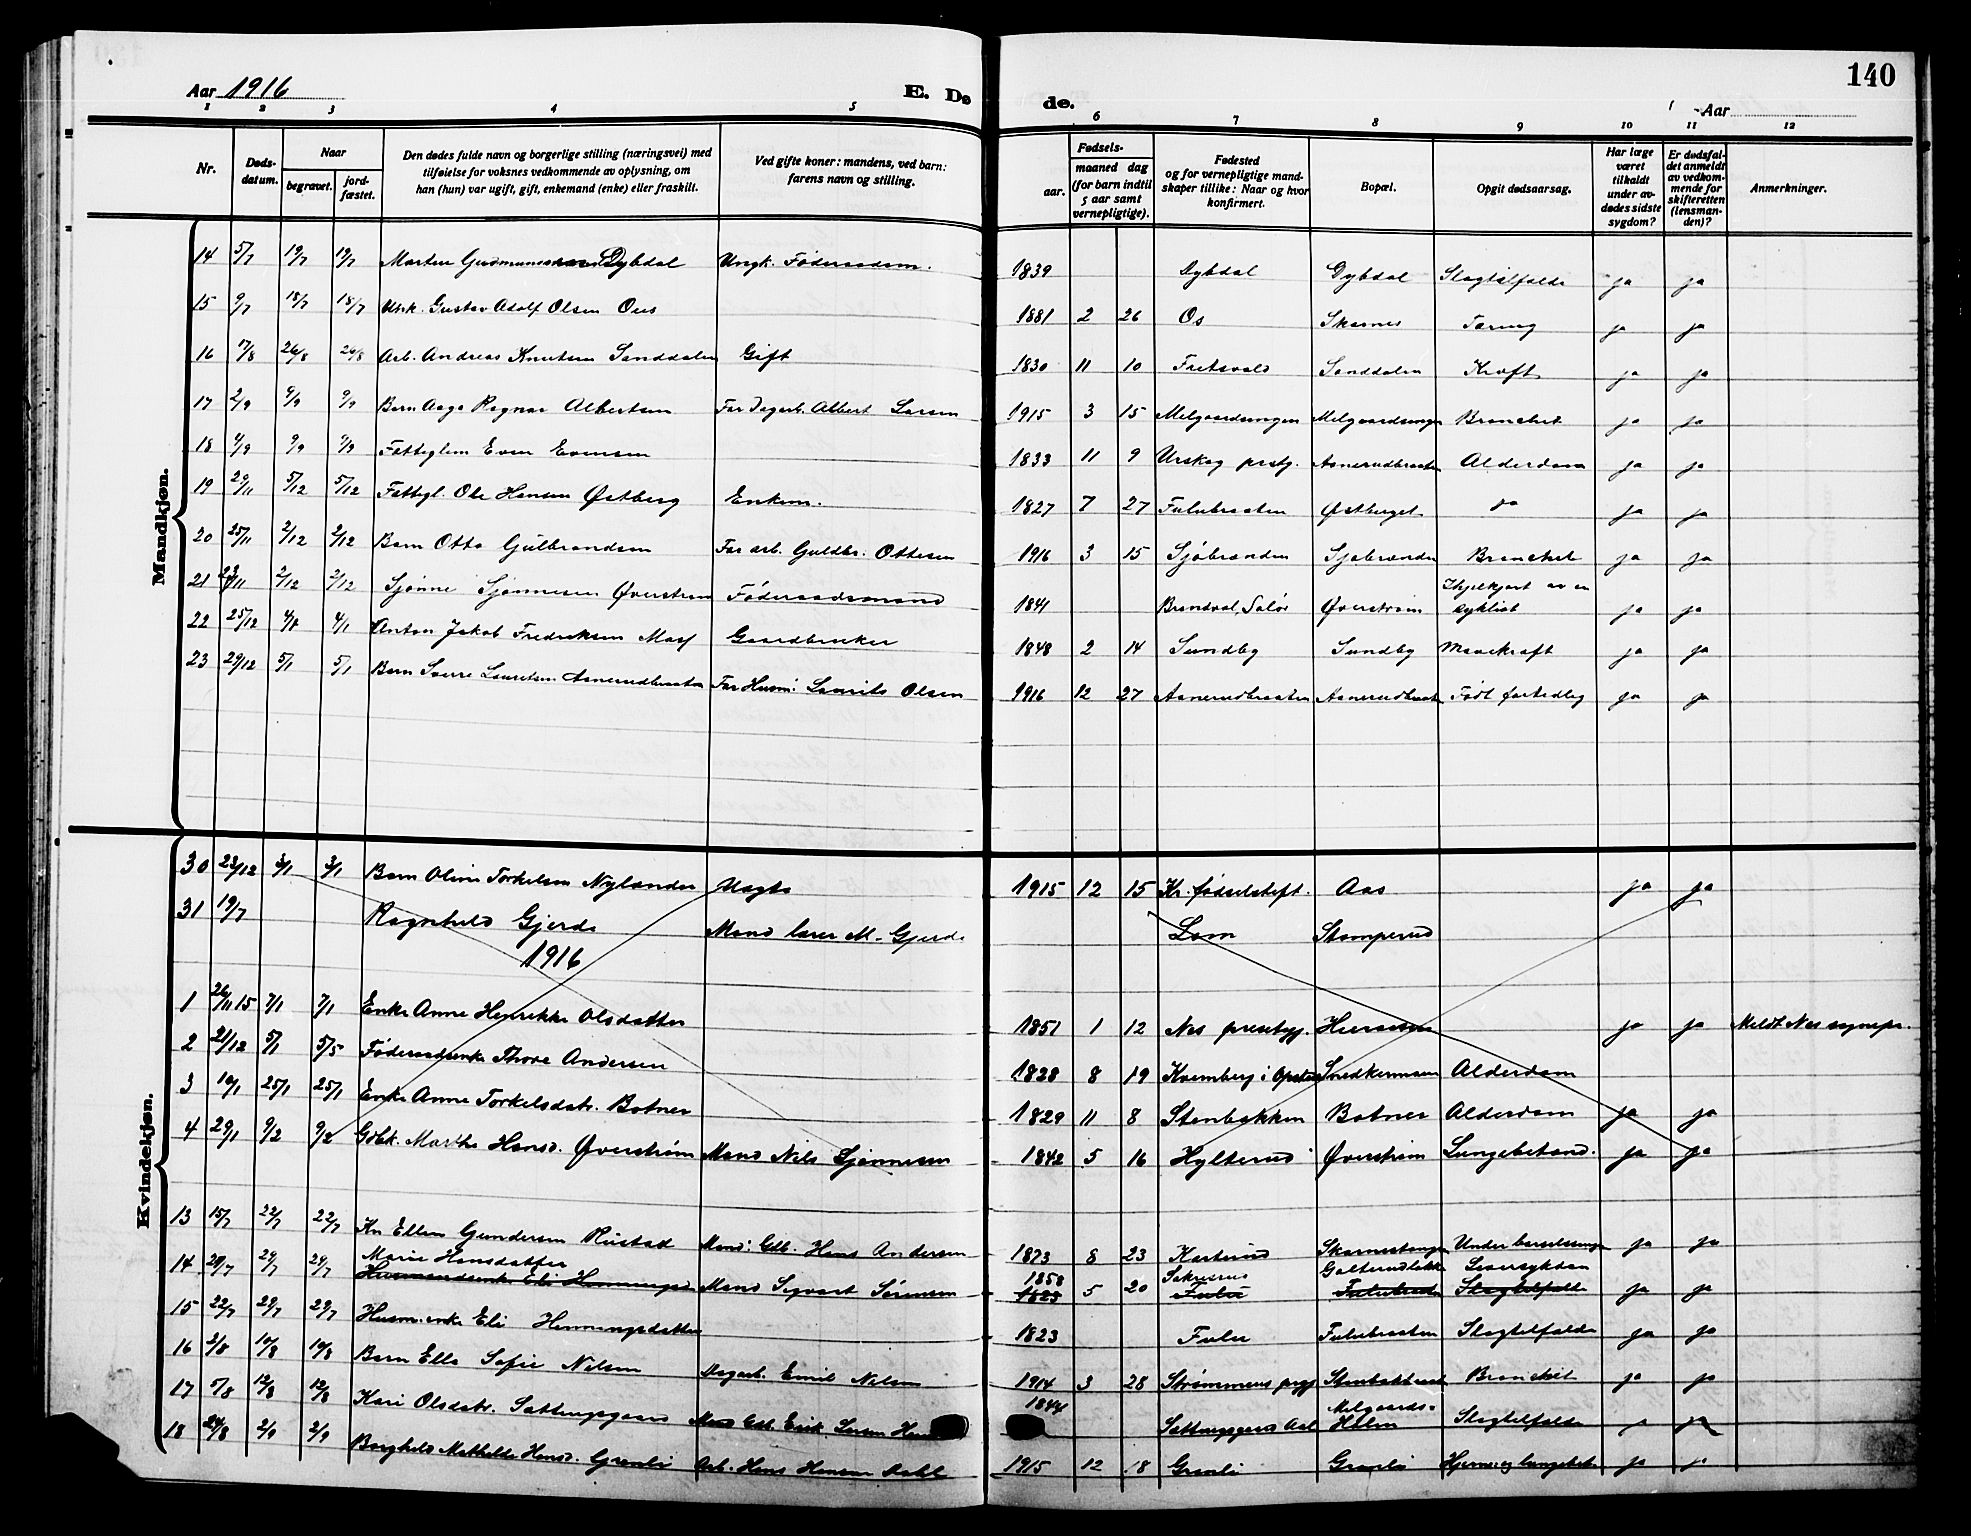 140
Aar 1916
E. Dø
de.
Aar
1 2 3 4 5 6 7 8 9 10 11 12
Nr.
Døds-datum.
Naar
begravet.
jord-fæstet.
Den dødes fulde navn og borgerlige stilling (næringsvei) med
tilføielse for voksnes vedkommende av oplysning, om
han (hun) var ugift, gift, enkemand (enke) eller fraskilt.
Ved gifte koner: mandens, ved barn:
farens navn og stilling.
Fødsels-
aar.
maaned dag
(for barn indtil
5 aar samt
vernepligtige).
Fødested
og for vernepligtige mand-
skaper tillike: Naar og hvor
konfirmert.
Bopæl.
Opgit dødsaarsag.
Har læge
været
tilkaldt
under av-
dødes sidste
sygdom?
Er dødsfal-
det anmeldt
av vedkom-
mende for
skifteretten
(lensman-
den)?
Anmerkninger.
Mandkjøn.
14 5/7 19/7 19/7 Dybdal Ungk. Føderaadsm. 1839 Dybdal Dybdal Slagtilfælde ja ja
15 9/7 18/7 18/7 Gustav Adolf Olsen Ous 1881 2 26 Os Skarnes Tæring ja ja
16 17/8 26/8 26/8 Arb. Andreas Knutsen Sanddalen Gift 1830 11 10 Fritsvold Sanddalen Kræft ja ja
17 2/9 9/9 9/9 Barn Aage Ragnar Albertsen Far Dagarb. Albert Larsen 1915 3 15 Melgaardsengen Melgaardsengen Bronchit ja ja
18 4/9 9/9 9/9 Fattiglem Even Evensen 1833 11 9 Urskog prstg. Asnerudbraaten Alderdom ja ja
19 29/11 5/12 5/12 Fattigl. Ole Hansen Østberg Enkem. 1827 7 27 Fulubraaten Østberget do ja ja
20 25/11 2/12 2/12 Barn Otto Gulbrandsen Far arb. Guldbr. Ottesen 1916 3 15 Sjøbrænden Sjøbrænden Bronchit ja ja
21 23/11 2/12 2/12 Sjønne Sjønnesen Øverstrøm Føderaadsmand 1841 Brandval, Solør Øverstrøm Ihjelkjørt av en syklist ja ja
22 25/12 4/1 4/1 Anton Jakob Fredriksen Gaardbruker 1848 2 14 Sundby Sundby Mavekræft ja ja
23 29/12 5/1 5/1 Barn Sverre Lauritsen Asnerudbraaten Far Husm. Laurits Olsen 1916 12 27 Asnerudbraaten Asnerudbraaten Født fortidlig ja ja
Kvindekjøn.
30 23/12 3/1 3/1 Barn Oline Torkelsen Nylænder Uægte 1915 12 15 Kr. fødselsstift. Aas ja ja
31 19/7 Ragnhild Gjerde Mand lærer M. Gjerde Lom Stomperud
1916
1 26/11 15 7/1 7/1 Enke Anne Henrikke Olsdatter 1851 1 12 Nes prestegj. ja ja Meldt Nes sognepr.
2 21/12 5/1 5/5 Føderaadsenke Thore Andersen 1828 8 19 Kvemberg i Snedkermoen Alderdom
3 19/1 25/1 25/1 Enke Anne Torkelsdatr. Botner 1829 11 8 Stenbakken Botner Alderdom ja ja
4 29/1 9/2 9/2 Gdbk. Marthe Hansd. Øverstrøm Mand Nils Sjønnesen 1842 5 16 Hylterud Øverstrøm Lungebetænd. ja ja
13 15/7 22/7 22/7 Kn Ellen Gundersen Rustad Mand: Gdb. Hans Andersen 1873 8 23 Karterud Skarnestangen Under barselsseng ja ja
14 20/7 29/7 29/7 Marie Hansdatter Husmandsenke Eli Henningsd Mand Sigvart Sørensen 1858 1823 5 20 Fulu Galterudlökka Leversykdom Slagtilfælde ja ja
15 22/7 29/7 29/7 Husm.enke Eli Henningsdatter 1823 Fulu Fulubraaten Slagtilfælde ja ja
16 2/8 10/8 10/8 Barn Ella Sofie Nilsen Dagarb. Emil Nilsen 1914 3 28 Strømmens Bronchit ja ja
17 5/8 12/8 12/8 Kari Olsdatr. Sætringsgaard Mand Gdb. Erik Larsen 1844 Melgaards-Holm Slagtilfælde ja
18 24/8 2/9 2/9 Borghild Mathilde Hansd. Grønli Arb. Hans Hansen Dahl 1915 12 18 Grønli Grønli Hjerne og lungebet. ja ja